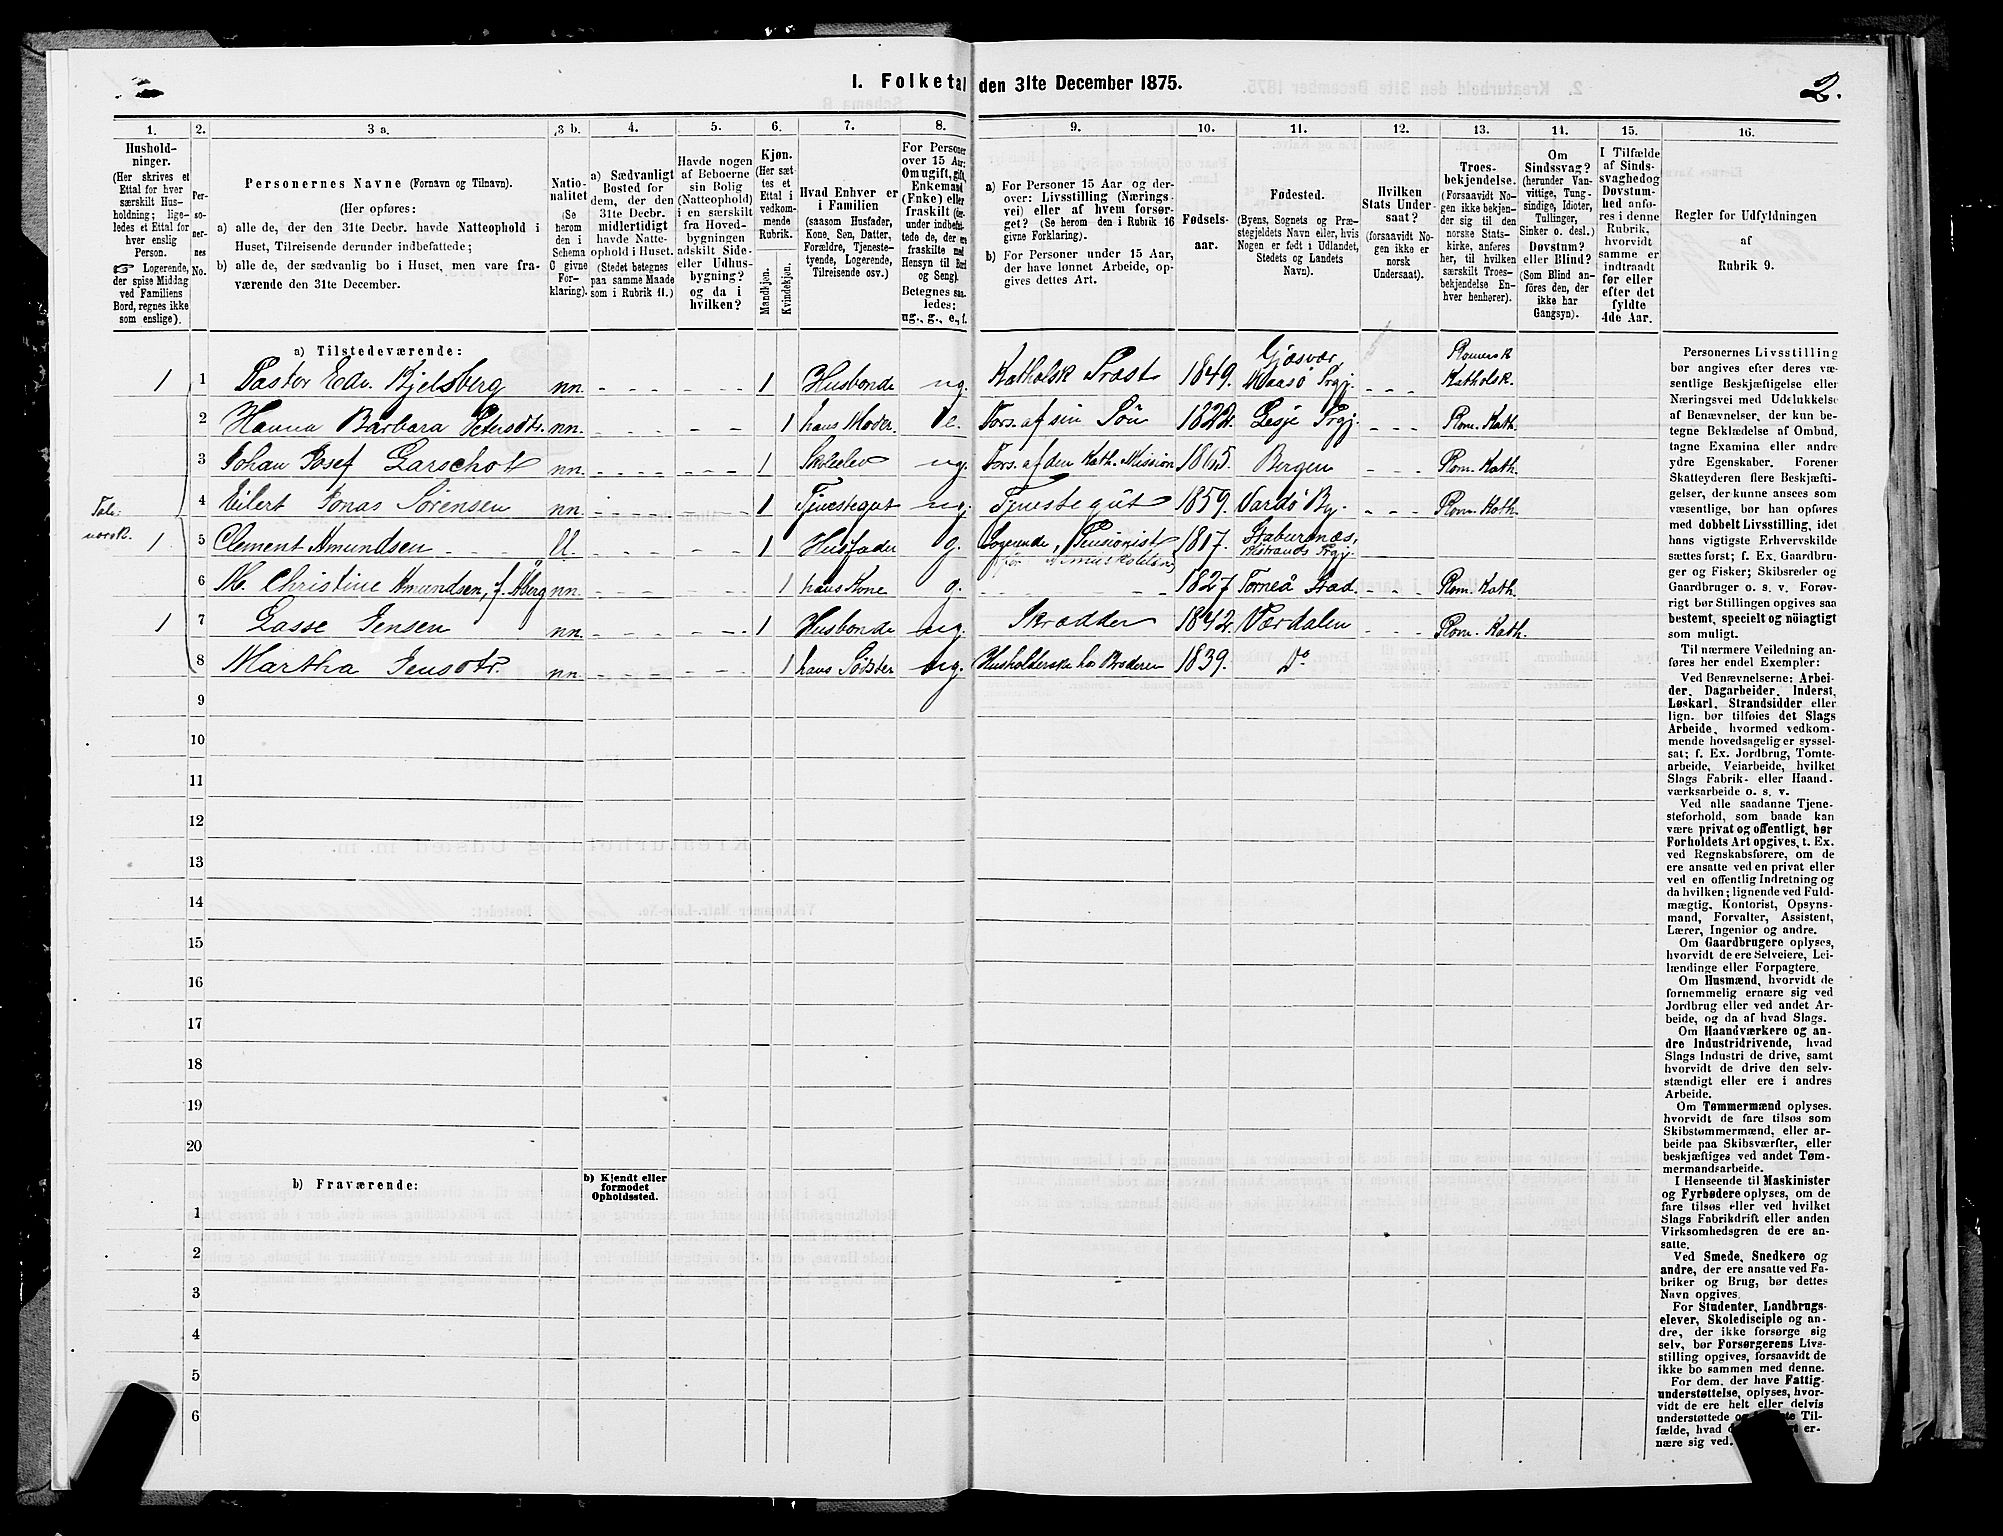 I. Folketal den 31te December 1875.
2.
1. 2. 3 a. 3 b. 4. 5. 6. 7. 8. 9. 10. 11. 12. 13. 14. 15. 16.
Hushold-
ninger.
(Her skrives et
Ettal for hver
særskilt Hus-
holdning; lige-
ledes et Ettal for
hver enslig
Person.
☞ Logerende,
der spise Middag
ved Familiens
Bord, regnes ikke
som enslige).
Per-
so-
ner-
nes
No.
Personernes Navne (Fornavn og Tilnavn).
(Her opføres:
a) alle de, der den 31te Decbr. havde Natteophold i
Huset, Tilreisende derunder indbefattede;
b) alle de, der sædvanlig bo i Huset, men vare fra-
værende den 31te December.
Natio-
nalitet
(Se
herom
den i
Schema
C givne
For-
klaring).
a) Sædvanligt
Bosted for
dem, der den
31te Decbr.
midlertidigt
havde Natte-
ophold i Huset.
(Stedet betegnes
paa samme Maade
som i Rubrik 11.)
Havde nogen
af Beboerne
sin Bolig
(Natteophold)
i en særskilt
fra Hoved-
bygningen
adskilt Side-
eller Udhus-
bygning?
og da i
hvilken?
Kjøn.
(Her sæt-
tes et
Ettal i
vedkom-
mende
Rubrik.
Mandkjøn.
Kvindekjøn.
Hvad Enhver er
i Familien
(saasom Husfader,
Kone, Søn, Datter,
Forældre, Tjeneste-
tyende, Logerende,
Tilreisende osv.)
For Personer
over 15 Aar:
Om ugift, gift,
Enkemand
(Enke) eller
fraskilt (der-
under indbefat-
tede de, der ere
fraskilte med
Hensyn til Bord
og Seng).
Betegnes saa-
ledes:
ug., g., e., f.
a) For Personer 15 Aar og der-
over: Livsstilling (Nærings-
vei) eller af hvem forsør-
get? (Se herom den i Rubrik 16
givne Forklaring).
b) For Personer under 15 Aar,
der have lønnet Arbeide, op-
gives dettes Art.
Fødsels-
aar.
Fødested.
(Byens, Sognets og Præ-
stegjeldets Navn eller, hvis
Nogen er født i Udlandet,
Stedets og Landets
Navn).
Hvilken
Stats Under-
saat?
(forsaavidt No-
gen ikke er
norsk
Undersaat).
Troes-
bekjendelse.
(Forsaavidt No-
gen ikke bekjen-
der sig til den
norske Stats-
kirke, anføres
her, til hvilken
særskilt Troes-
bekjendelse En-
hver henhører).
Om
Sindssvag?
(herunder Van-
vittige, Tung-
sindige, Idioter,
Tullinger,
Sinker o. desl.)
Døvstum?
eller Blind?
(Som Blind an-
føres den, der
ikke har
Gangsyn).
I Tilfælde
af Sinds-
svaghed og
Døvstum-
hed anfø-
res i denne
Rubrik,
hvorvidt
samme er
indtraadt
før eller
efter det
fyldte
4de Aar.
Regler for Udfyldningen
af
Rubrik 9.
a) Tilstedeværende:
1 1 Pastor Edv. Kjelsberg nn. 1 Husbonde ug. Katholsk Præst 1849. Gjæsvær, Maasø Prgj. Romersk Katholsk.
2 Hanna Barbara Petersdtr. nn. 1 hans Moder. e. Fors. af sin Søn 1822. Lesje Prgj. Rom. Kath.
3 Johan Josef Garschot nn. 1 Skoleelev ug. Fors. af den Kath. Mission 1865. Bergen Rom. Kath.
4 Eilert Jonas Sørensen nn. 1 Tjenestegut ug. Tjenestegut 1859. Vardø By. Rom. Kath.
Tale:
norsk.
1 5 Clement Amundsen ll. 1 Husfader g. Logerende, Pensionist 1817. Staburnæs,
6 M. Christine Amundsen, f. Åberg nn. 1 hans Kone g. 1827. Torneå Stad. Rom. Kath.
1 7 Lasse Jensen nn. 1 Husbonde ug. Skrædder 1842. Værdalen Rom. Kath.
8 Martha Jensdtr. nn. 1 hans Søster ug. Husholderske hos Broderen 1839. Do
9
10
11
12
13
14
15
16
17
18
19
20
b) Fraværende:
b) Kjendt eller
formodet
Opholdssted.
1
2
3
4
5
6
Personernes Livsstilling
bør angives efter deres væ-
sentlige Beskjæftigelse eller
Næringsvei med Udelukkelse
af Benævnelser, der kun be-
tegne Beklædelse af Ombud,
tagne Examina eller andre
ydre Egenskaber. Forener
Skatteyderen flere Beskjæfti-
gelser, der kunne ansees som
væsentlige, bør han opføres
med dobbelt Livsstilling, idet
hans vigtigste Erhvervskilde
sættes først; f. Ex. Gaardbru-
ger og Fisker; Skibsreder og
Gaardbruger o. s. v. Forøv-
rigt bør Stillingen opgives saa
bestemt, specielt og nøiagtigt
som muligt.
Til nærmere Veiledning an-
føres her endel Exempler:
Ved Benævnelserne: Arbei-
der, Dagarbeider, Inderst,
Løskarl, Strandsidder eller
lign. bør tilføies det Slags
Arbeide, hvormed vedkom-
mende hovedsagelig er syssel-
sat; f. Ex. Jordbrug, Tomte-
arbeide, Veiarbeide, hvilket
Slags Fabrik- eller Haand-
værksarbeide o. s. v.
Ved alle saadanne Tjene-
steforhold, som baade kan
være privat og offentligt, bør
Forholdets Art opgives, t. Ex.
ved Regnskabsførere, om de
ere ansatte ved en privat eller
ved en offentlig Indretning og
da hvilken; lignende ved Fuld-
mægtig, Kontorist, Opsyns-
mand, Forvalter, Assistent,
Lærer, Ingeniør og andre.
Om Gaardbrugere oplyses,
hvorvidt de ere Selveiere, Lei-
lændinge eller Forpagtere.
Om Husmænd, hvorvidt de
fornemmelig ernære sig ved
Jordbrug eller ved andet Ar-
beide, og da af hvad Slags.
Om Haandværkere og an-
dre Industridrivende, hvad
Slags Industri de drive, samt
hvorvidt de drive den selv-
stændigt eller ere i andres
Arbeide.
Om Tømmermænd oplyses.
hvorvidt de fare tilsøs som
Skibstømmermænd, eller ar-
beide paa Skibsværfter, eller
beskjæftiges ved andet Tøm-
mermandsarbeide.
I Henseende til Maskinister
og Fyrbødere oplyses, om de
fare tilsøs eller ved hvilket
Slags Fabrikdrift eller anden
Virksomhedsgren de ere an-
satte.
Ved Smede, Snedkere og
andre, der ere ansatte ved Fa-
briker og Brug, bør dettes
Navn opgives.
For Studenter, Landbrugs-
elever, Skoledisciple og an-
dre, der ikke forsørge sig
selv, bør Forsørgerens Livs-
stilling opgives, forsaavidt de
ikke bo sammen med denne.
For dem, der have Fattig-
understøttelse, oplyses, hvor-
vidt de ere helt eller delvis
understøttede og Til-
fælde, hvad er-
nære sig ved.